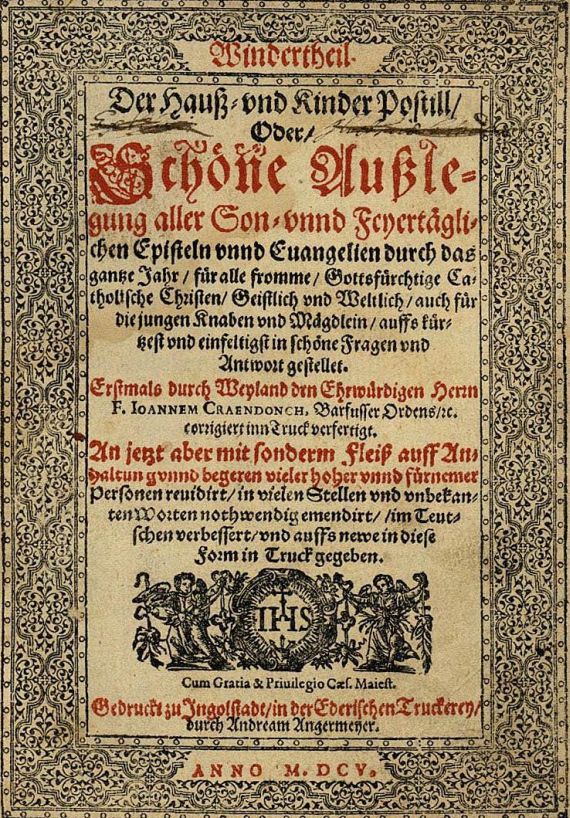 Windertheil.
Der Hauß- vnd Kinder Postill/
Oder/
Schöne Außle-
gung aller Son- vnnd Feyertägli-
chen Episteln vnnd Euangelien durch das
gantze Jahr/ für alle fromme/ Gottsfürchtige Ca-
tholische Christen/ Geistlich vnd Weltlich/ auch für
die jungen Knaben vnd Mägdlein/ auffs kür-
tzest vnd einfeltigst in schöne Fragen vnd
Antwort gestellet.
Erstmals durch Weyland den Ehrwürdigen Herrn
F. IOANNEM CRAENDONCH, Barfusser Ordens/ꝛc.
corrigiert inn Truck verfertigt.
An jetzt aber mit sonderm Fleiß auff An-
haltun gvnnd begeren vieler hoher vnnd fürnemer
Personen reuidirt/ in vielen Stellen vnd vnbekan-
ten Worten nothwendig emendirt/ /im Teut-
schen verbessert/ vnd auffs newe in diese
Form in Truck gegeben.
IHS
Cum Gratia & Priuilegio Cæs. Maiest.
Gedruckt zu Ingolstadt/ in der Ederischen Truckerey/
durch Andream Angermeyer.
ANNO M. DCV.